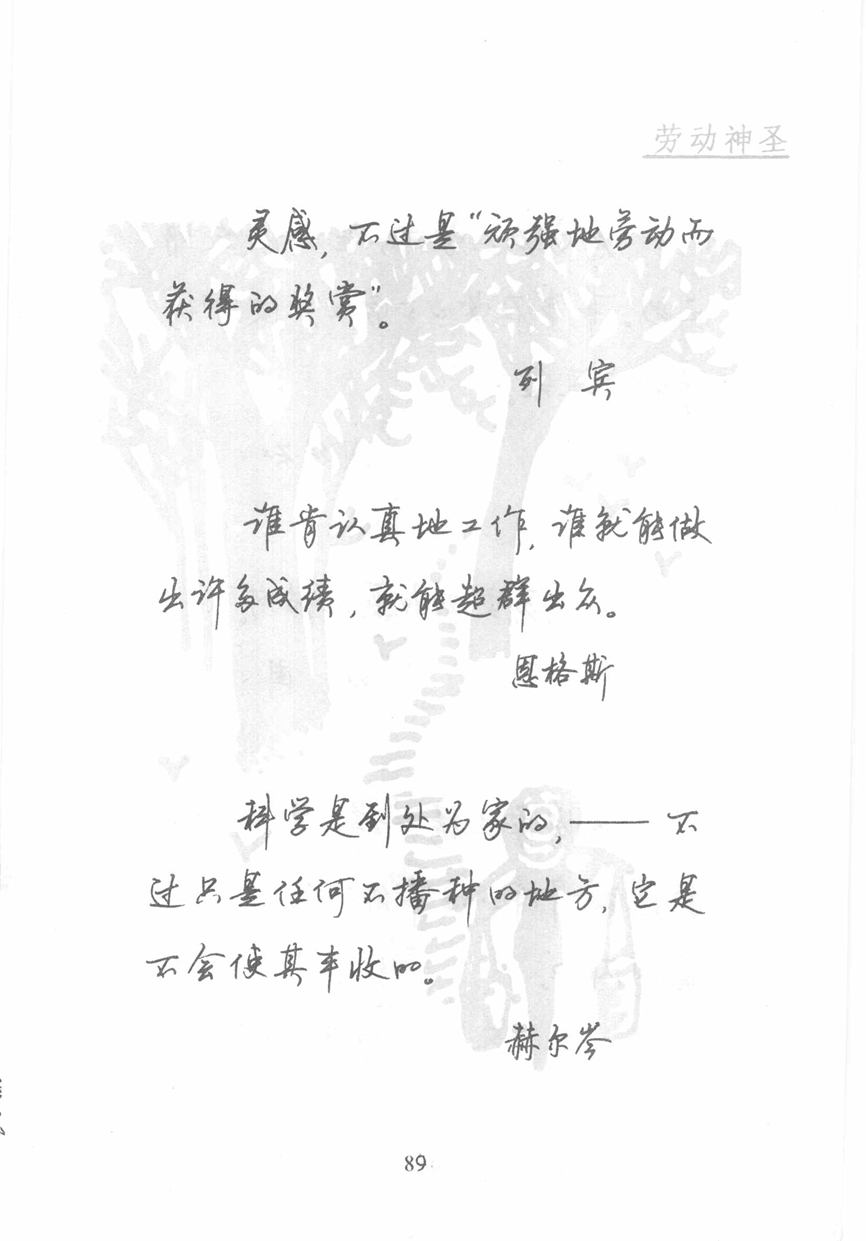 劳动神圣
灵感，不过是“顽强地劳动而
获得的奖赏”。
列 宾
谁肯认真地工作，谁就能做
出许多成绩，就能超群出众。
恩格斯
科学是到处为家的，——不
过只是任何不播种的地方，它是
不会使其丰收的。
赫尔岑
89